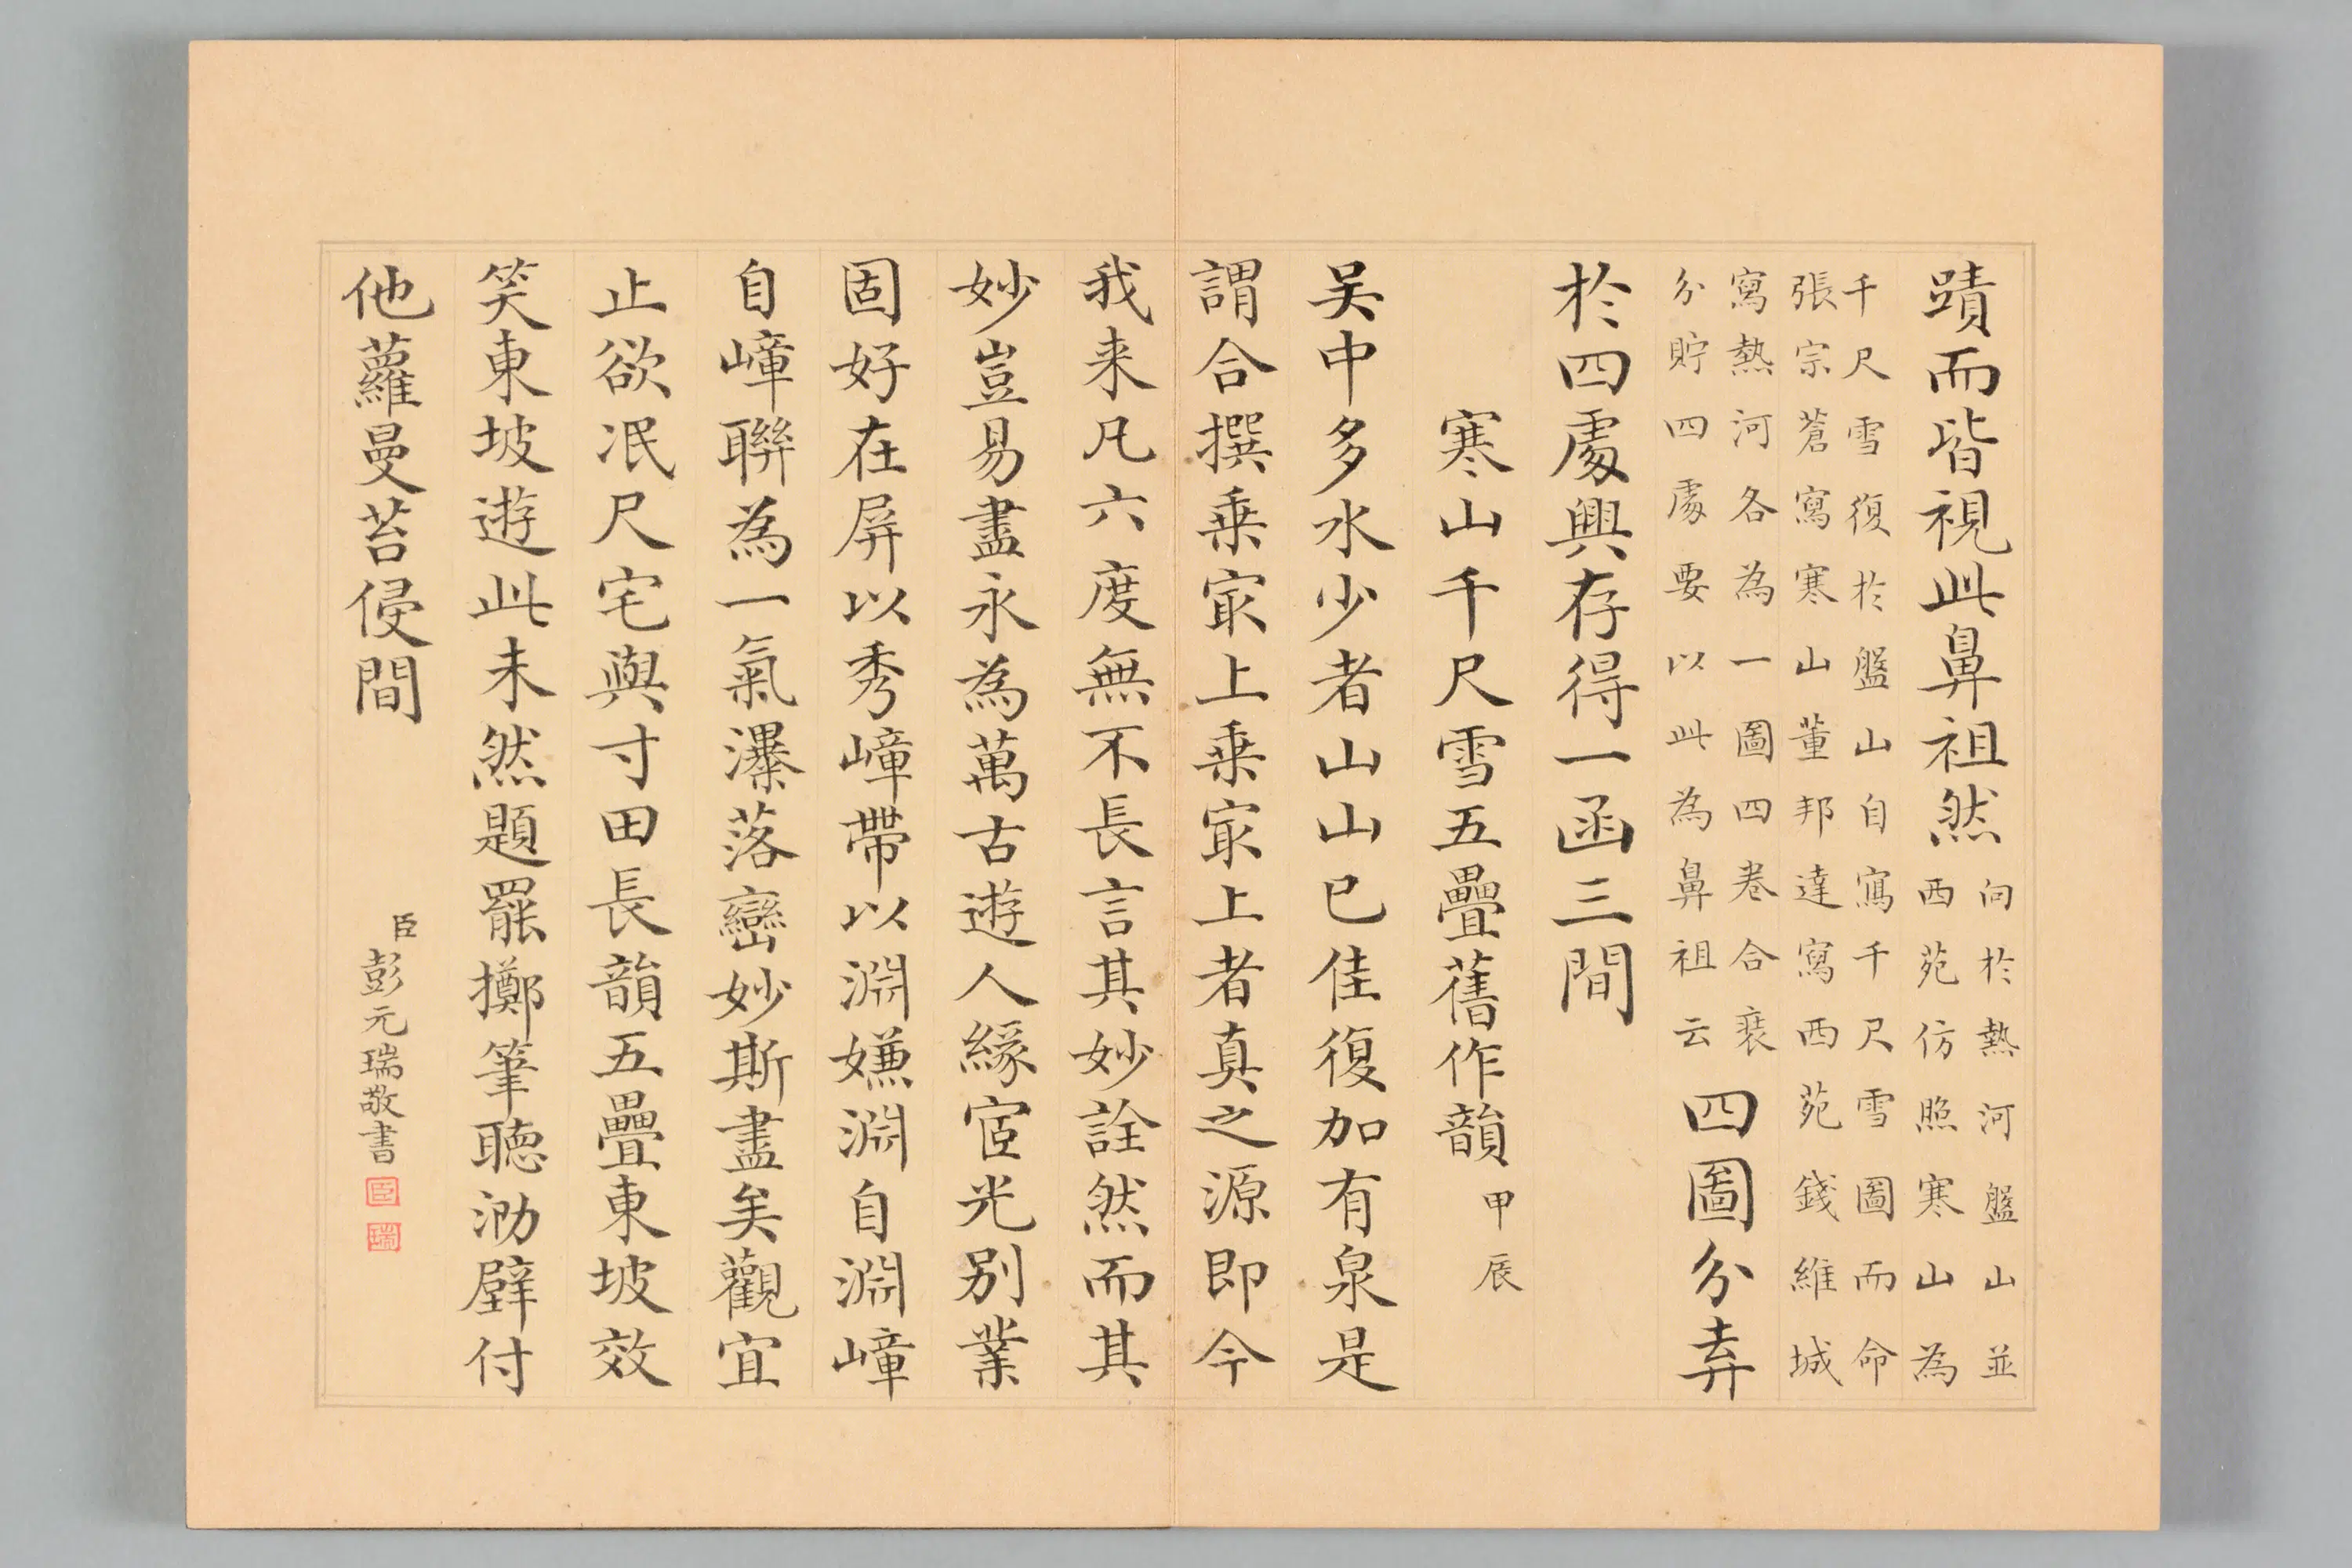 蹟而皆視此鼻祖然
向於熱河盤山並
西苑仿照寒山為
千尺雪復於盤山自寫千尺雪圖而命
張宗蒼寫寒山董邦達寫西苑錢維城
寫熱河各為一圖四卷合裝
分貯四處要以此為鼻祖云
四圖分弆
於四處興存得一函三間
寒山千尺雪五疊舊作韻甲辰
吴中多水少者山山已佳復加有泉是
謂合撰乗冣上乗冣上者真之源即今
我来凡六度無不長言其妙詮然而其
妙豈易盡永為萬古遊人緣宧光別業
固好在屏以秀嶂帶以淵嫌淵自淵嶂
自嶂聯為一氣瀑落巒妙斯盡矣觀宜
止欲泯尺宅與寸田長韻五疊東坡效
笑東坡遊此未然題罷擲筆聽泐壁付
他蘿曼苔侵間
臣彭元瑞敬書
臣
瑞